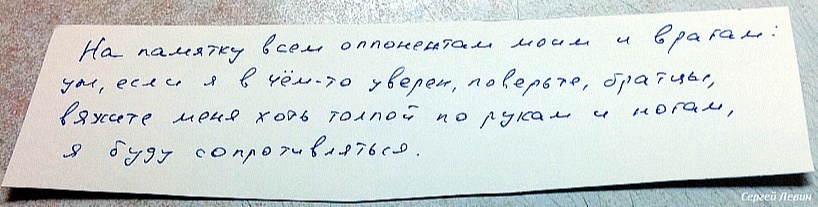 На памятку всем оппонентам моим и врагам:
уж, если я в чём-то уверен, поверьте, братцы,
вяжите меня хоть толпой по рукам и ногам,
я буду сопротивляться.
Сергей Левин